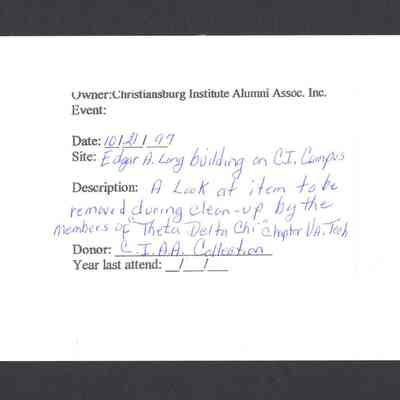 Owner:Christiansburg Institute Alumni Assoc. Inc.
Event:
Date: 10/21/97
Site: Edgar A. Long building on C.I. Campus
Description: A Look at item to be
removed during clean-up by the
members of "Theta Delta Chi" Chapter VA. Tech
Donor: C.I.A.A. Collection
Year last attend: __/__/__